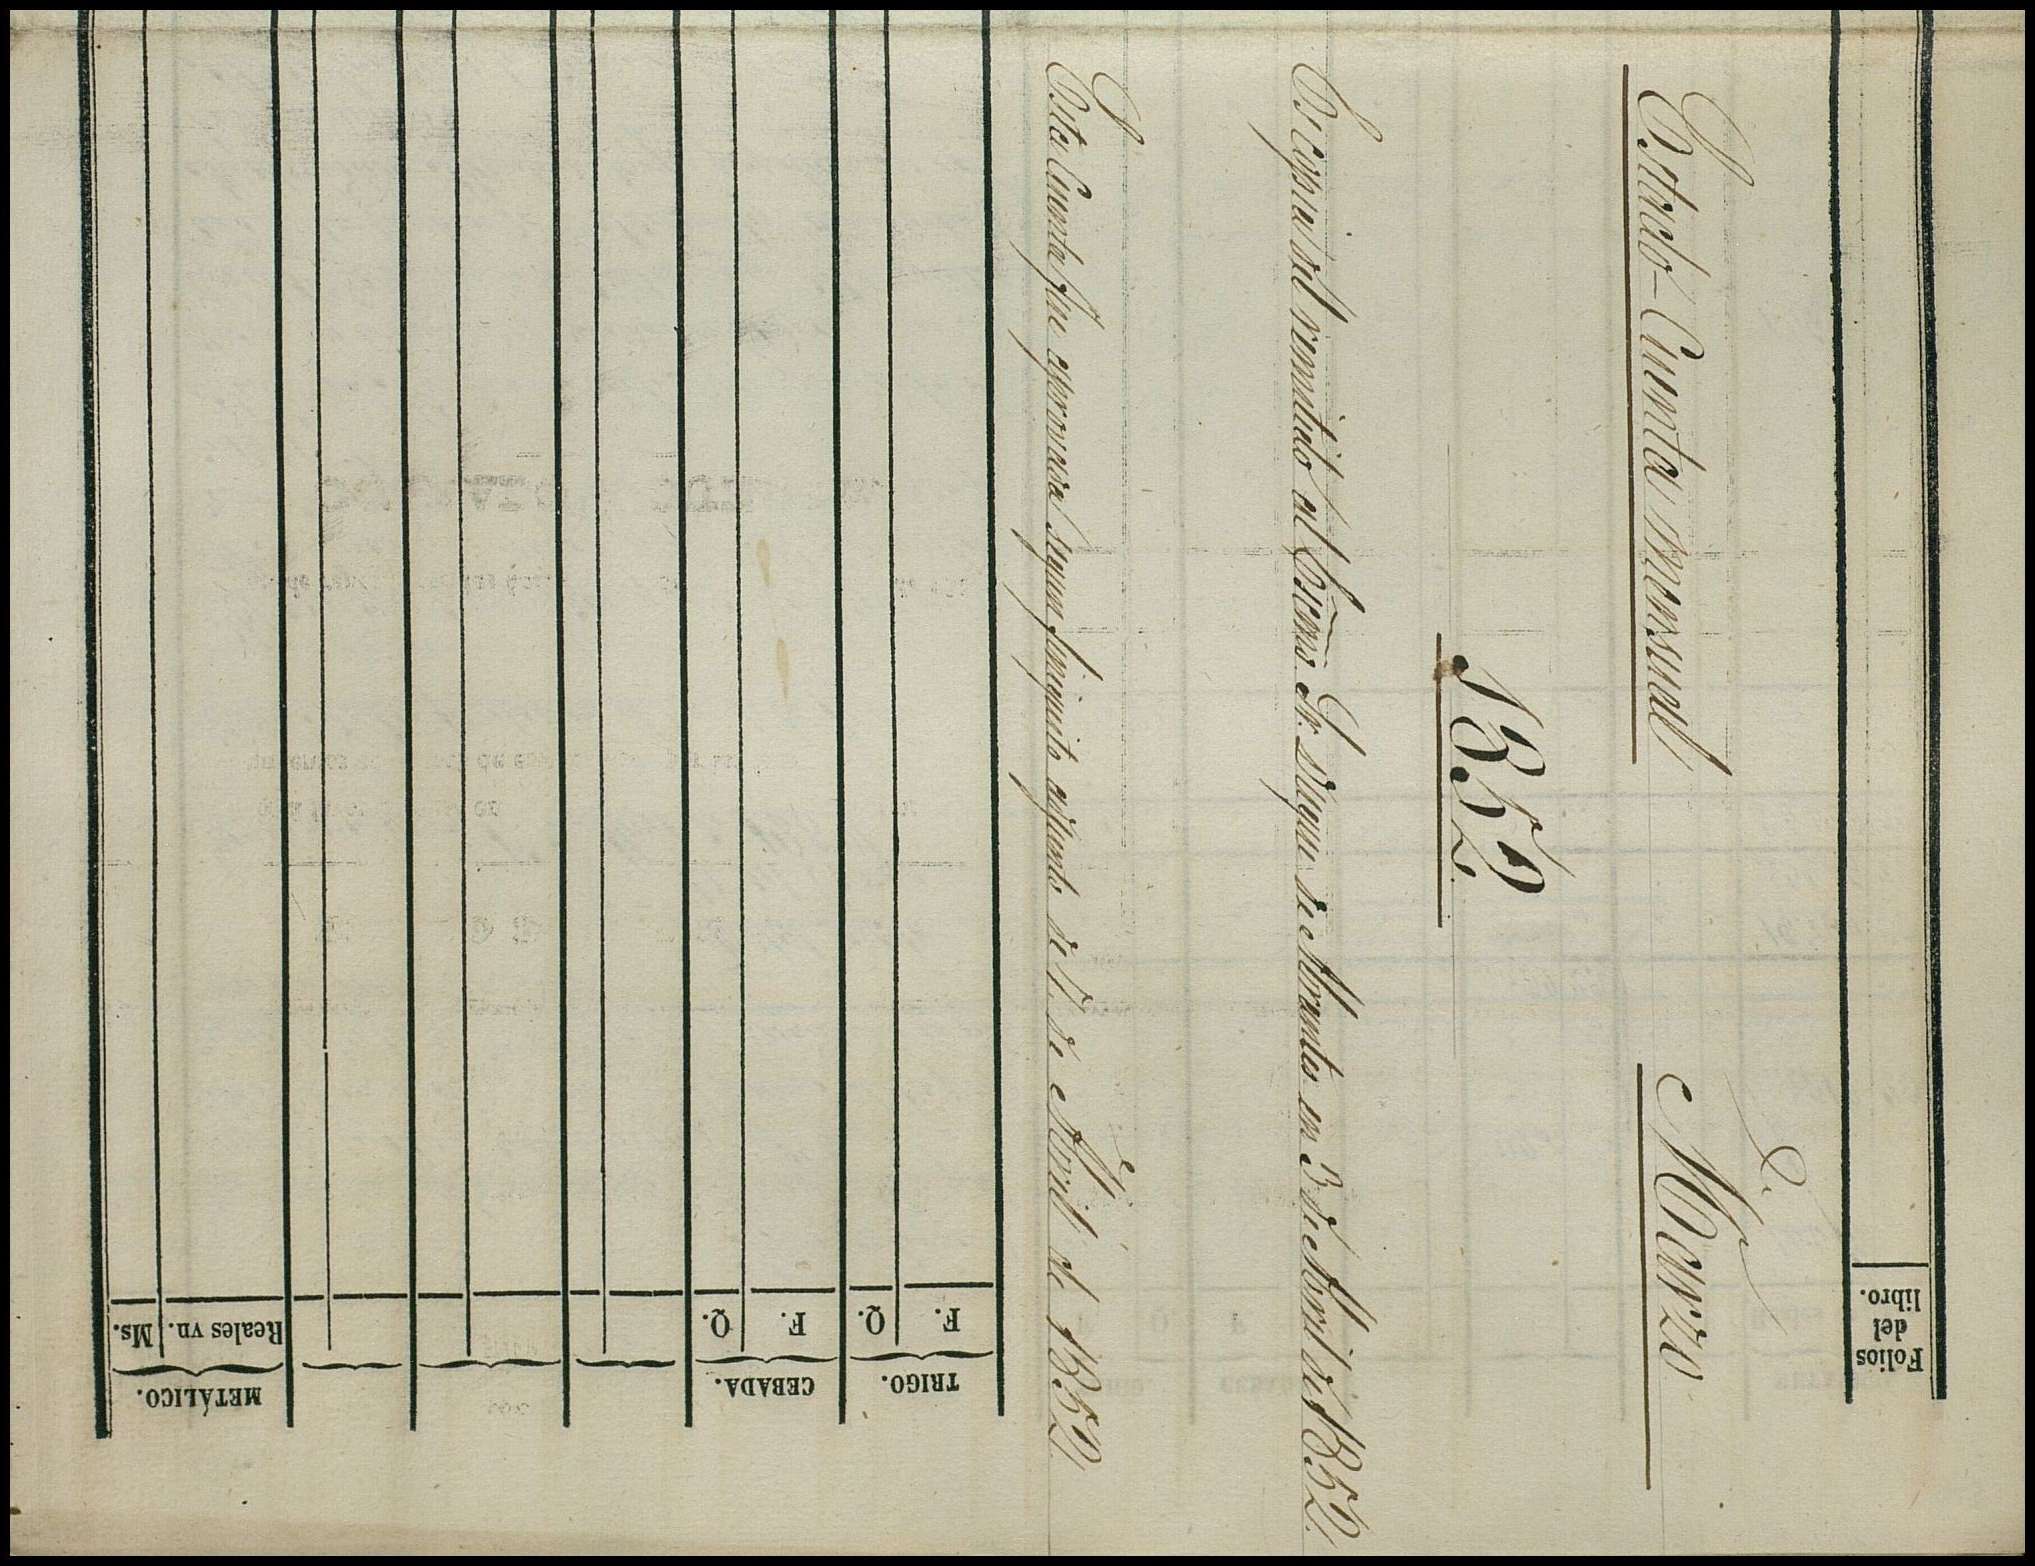 Estado-Cuenta mensual
De
Marzo
1852.
Es Copia del remitido al Excmo. Sr. Duque de Abrantes en 3 de Abril de 1852.
Esta Cuenta fue aprovada segun finiquito adjunto de 17 de Abril de 1852.
Folios
del
libro.
TRIGO.
F. Q.
CEBADA.
F. Q.
METÁLICO.
Reales vn. Ms.